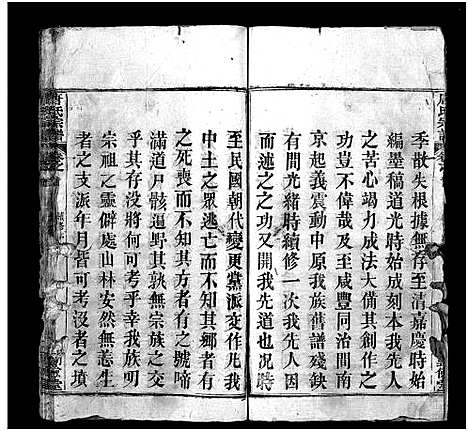 季散失根據無存至清嘉慶時始
編墨稿道光時始成刻本我先人
之苦心竭力成法大備其創作之
功豈不偉哉及至咸豐同治間南
京起義震動中原我族舊譜殘缺
有間光緒時續修一次我先人繼
而述之之功又開我先道也況時
至民國朝代變更黨派交作凡我
中土之眾逃亡而不其鄉者有
之死喪而不知其方者有之號啼
滿道尸骸遍野其孰無宗族之交
乎其存沒將何可考乎幸我族明
宗祖之靈僻處山林安然無恙生
者之支派年月皆可考沒者之墳
唐氏宗譜